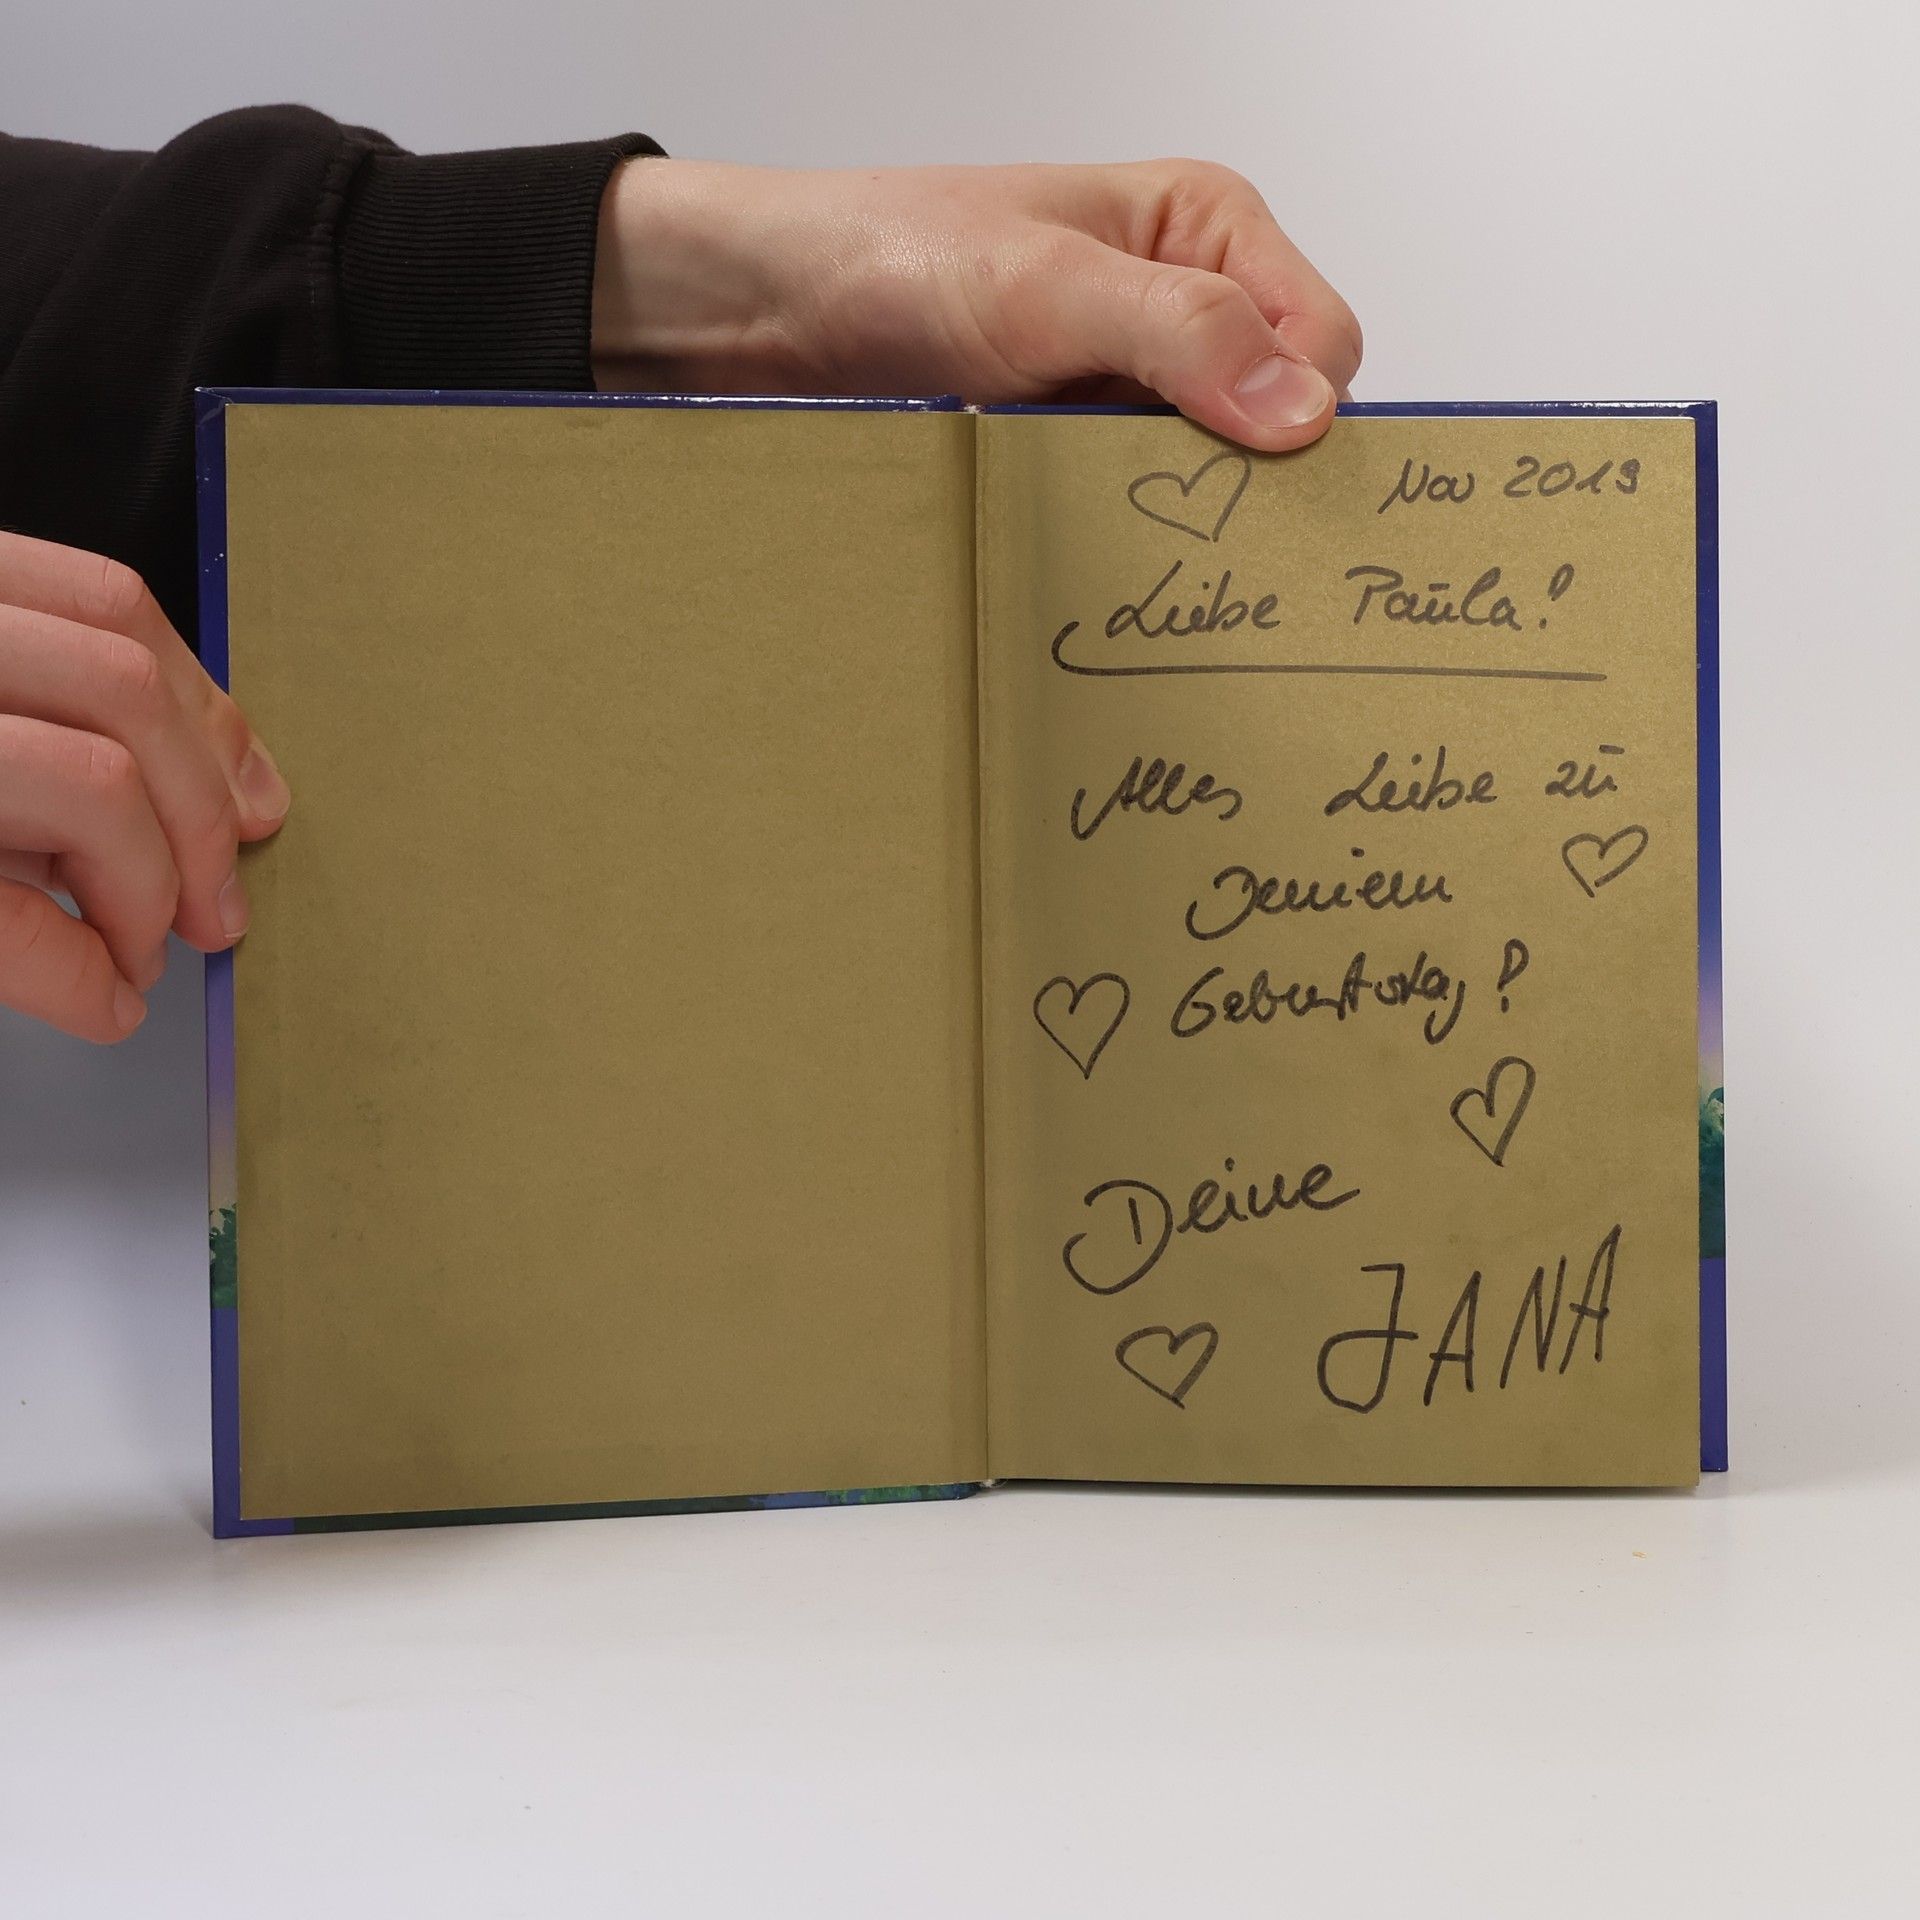 Nov 2019
Liebe Paula!
Alles Liebe zu
Deinem
Geburtstag!
Deine
JANA